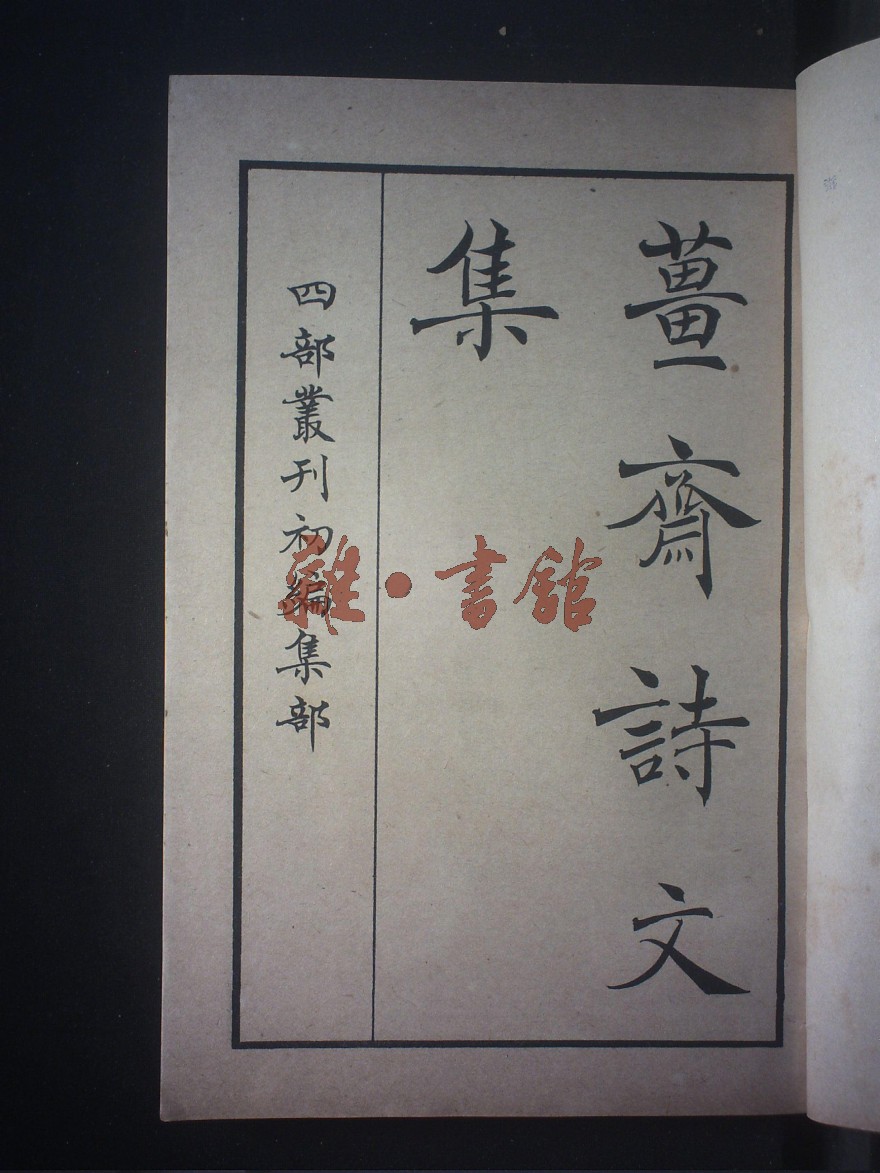 薑齋詩文
集
四部叢刊初編集部
雜·書館